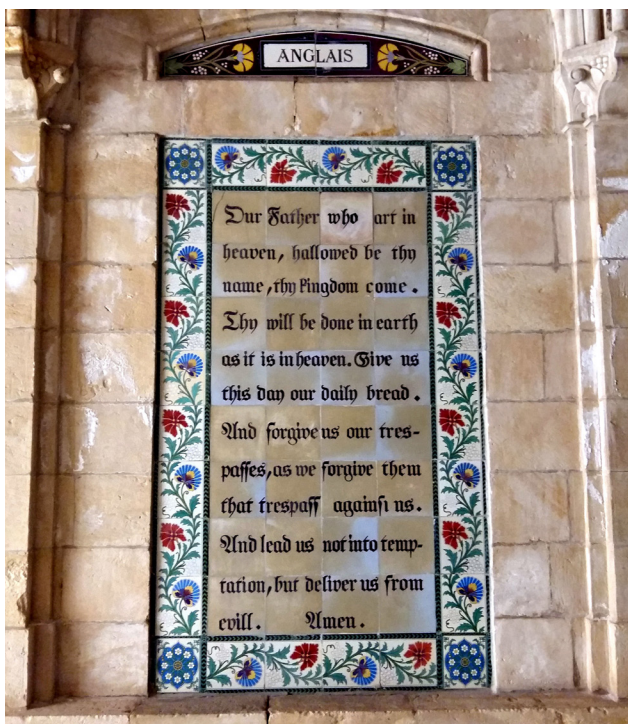 ANGLAIS
Our Father who art in
heaven, hallowed be thy
name, thy kingdom come.
Thy will be done in earth
as it is in heaven. Give us
this day our daily bread.
And forgive us our tres-
paſſes, as we forgive them
that trespaſſ againſt us.
And lead us not into temp-
tation, but deliver us from
evill. Amen.